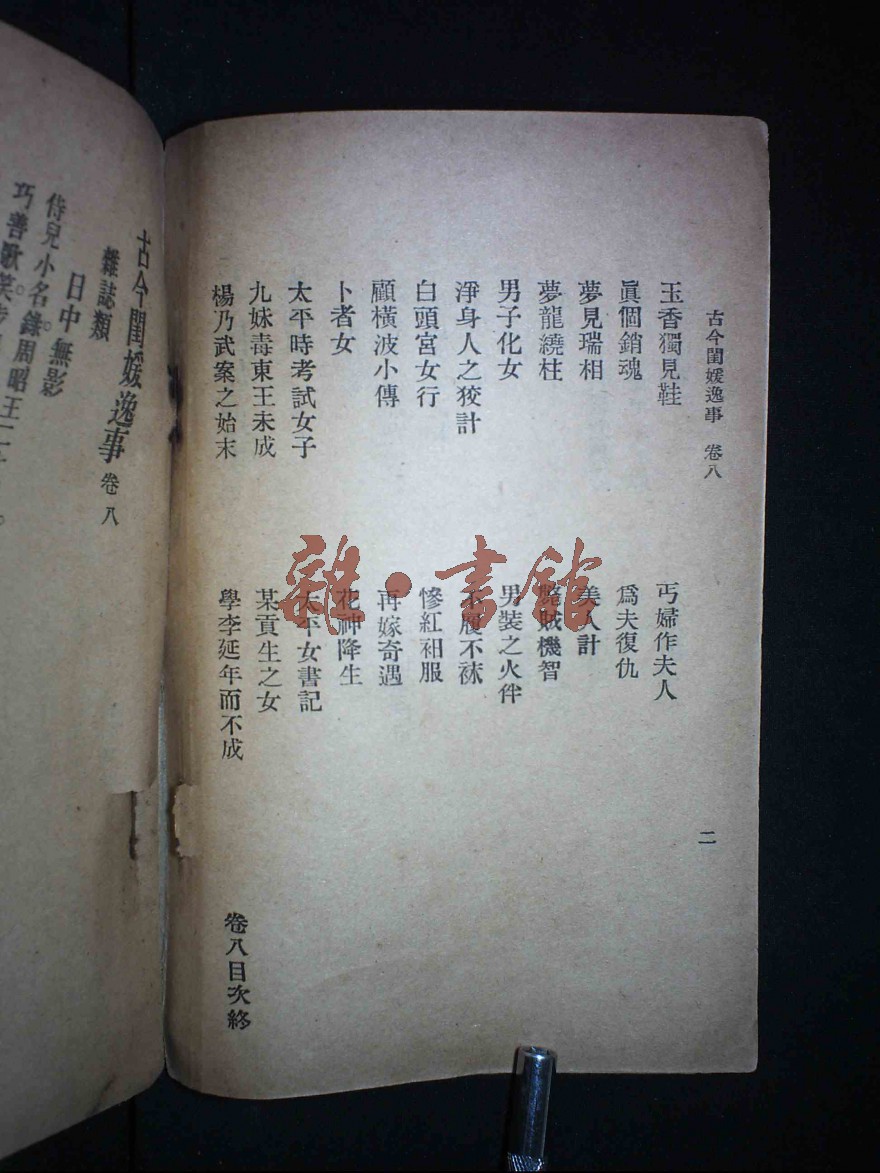 古今閨媛逸事　卷八
二
玉香獨見鞋
丐婦作夫人
眞個銷魂
爲夫復仇
夢見瑞相
美人計
夢龍繞柱
賊機智
男子化女
男裝之火伴
淨身人之狡計
不履不袜
白頭宮女行
慘紅衵服
顧橫波小傳
再嫁奇遇
卜者女
花神降生
太平時考試女子
太平女書記
九妹毒東王未成
某貢生之女
楊乃武案之始末
學李延年而不成
卷八目次終
古今閨媛逸事　卷八
雜誌類
日中無影
侍兒小名錄。周昭王二
巧善歌笑
雜·書館